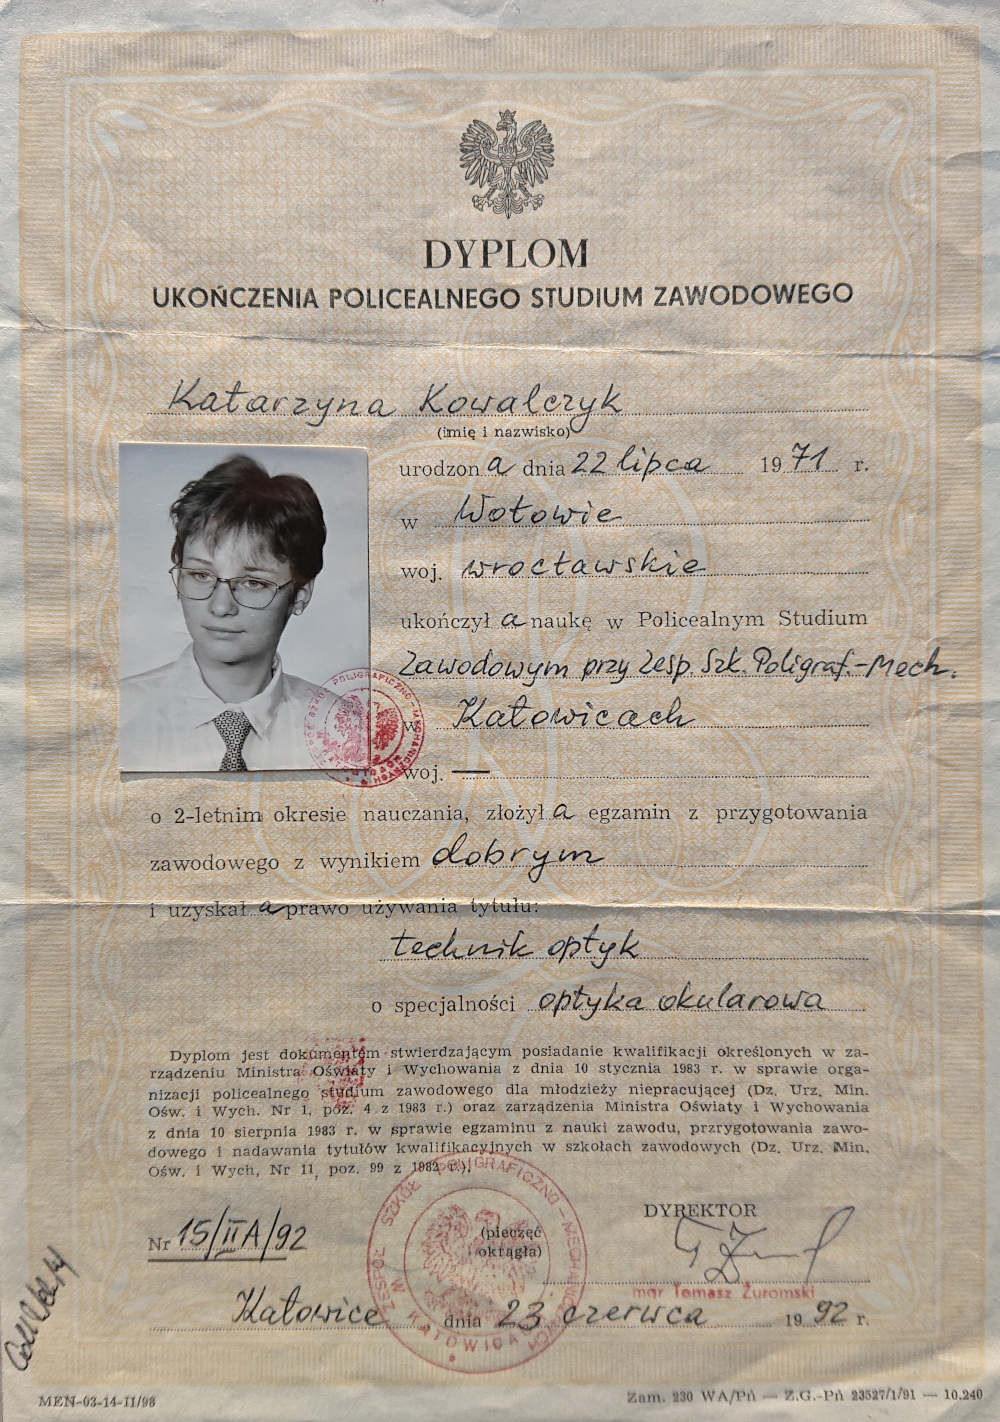 DYPLOM
UKOŃCZENIA POLICEALNEGO STUDIUM ZAWODOWEGO
Katarzyna Kowalczyk
(imię i nazwisko)
urodzona dnia 22 lipca 1971 r.
w Wołowie
woj. wrocławskie
ukończyła naukę w Policealnym Studium
Zawodowym przy Zesp. Szk. Poligraf.-Mech.
w Katowicach
woj. —
o 2-letnim okresie nauczania, złożyła egzamin z przygotowania
zawodowego z wynikiem dobrym
i uzyskała prawo używania tytułu:
technik optyk
o specjalności optyka okularowa
Dyplom jest dokumentem stwierdzającym posiadanie kwalifikacji określonych w za-
rządzeniu Ministra Oświaty i Wychowania z dnia 10 stycznia 1983 r. w sprawie orga-
nizacji policealnego studium zawodowego dla młodzieży niepracującej (Dz. Urz. Min.
Ośw. i Wych. Nr 1, poz. 4 z 1983 r.) oraz zarządzenia Ministra Oświaty i Wychowania
z dnia 10 sierpnia 1983 r. w sprawie egzaminu z nauki zawodu, przygotowania zawo-
dowego i nadawania tytułów kwalifikacyjnych w szkołach zawodowych (Dz. Urz. Min.
Ośw. i Wych, Nr 11, poz. 99 z 1982 r.).
DYREKTOR
Nr 15/IIA/92
(pieczęć
okrągła)
mgr Tomasz Żuromski
Katowice, dnia 23 czerwca 1992 r.
ZESPÓŁ SZKÓŁ POLIGRAFICZNO-MECHANICZNYCH
W KATOWICACH
MEN-03-14-II/98
Zam. 230 WA/Pń — Z.G.-Pń 23527/1/91 — 10.240